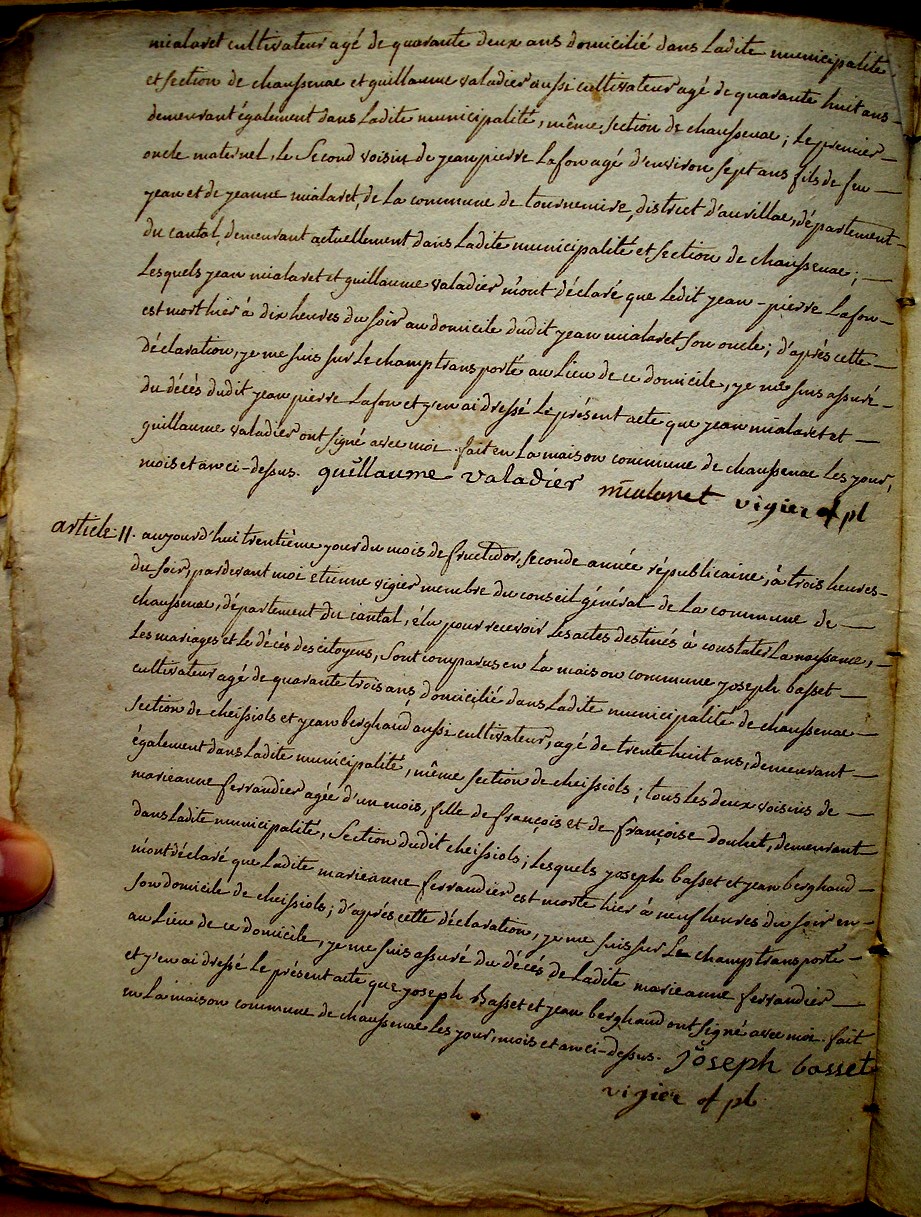 mialaret cultivateur agé de quarante deux ans domicilié dans Ladite municipalité
et section de chaussenac et guillaume valadier aussi cultivateur agé de quarante huit ans —
demeurant également dans Ladite municipalité, même section de chaussenac; Le premier —
oncle maternel, Le Second voisin de jean pierre Lafon agé d'environ sept ans fils de feu —
jean et de jeanne mialaret, de La commune de tournemire, district d'aurillac, département —
du cantal, demeurant actuellement dans Ladite municipalité et section de chaussenac; —
Lesquels jean mialaret et guillaume valadier m'ont déclaré que Ledit jean-pierre Lafon —
est mort hier à dix heures du soir au domicile dudit jean mialaret son oncle; d'après cette —
déclaration, je me suis sur Le champ transporté au Lieu de ce domicile, je me suis assuré —
du décès dudit jean pierre Lafon et j'en ai dressé Le présent acte que jean mialaret et —
guillaume valadier ont signé avec moi. fait en La maison commune de chaussenac Les jour,
mois et an ci-dessus. guillaume valadier mialaret vigier of pl
article 11. aujourd'hui trentième jour du mois de fructidor, seconde année républicaine, à trois heures —
du soir, pardevant moi etienne vigier membre du conseil général de La commune de —
chaussenac, département du cantal, élu pour recevoir Les actes destinés à constater La naissance, —
Les mariages et Le décès des citoyens, sont comparus en La maison commune joseph basset —
cultivateur agé de quarante trois ans, domicilié dans Ladite municipalité de chaussenac —
section de cheissiols et jean berghaud aussi cultivateur, agé de trente huit ans, demeurant —
également dans Ladite municipalité, même section de cheissiols; tous Les deux voisins de —
marieanne ferrandier agée d'un mois, fille de françois et de françoise douhet, demeurant
dans Ladite municipalité, section dudit cheissiols; Lesquels joseph basset et jean berghaud —
m'ont déclaré que Ladite marieanne ferrandier est morte hier à neuf heures du soir en —
son domicile de cheissiols; d'après cette déclaration, je me suis sur Le champ transporté —
au Lieu de ce domicile, je me suis assuré du décès de Ladite marieanne ferrandier —
et j'en ai dressé Le présent acte que joseph Basset et jean berghaud ont signé avec moi. fait
en La maison commune de chaussenac Les jour, mois et an ci-dessus. joseph basset
vigier of pl